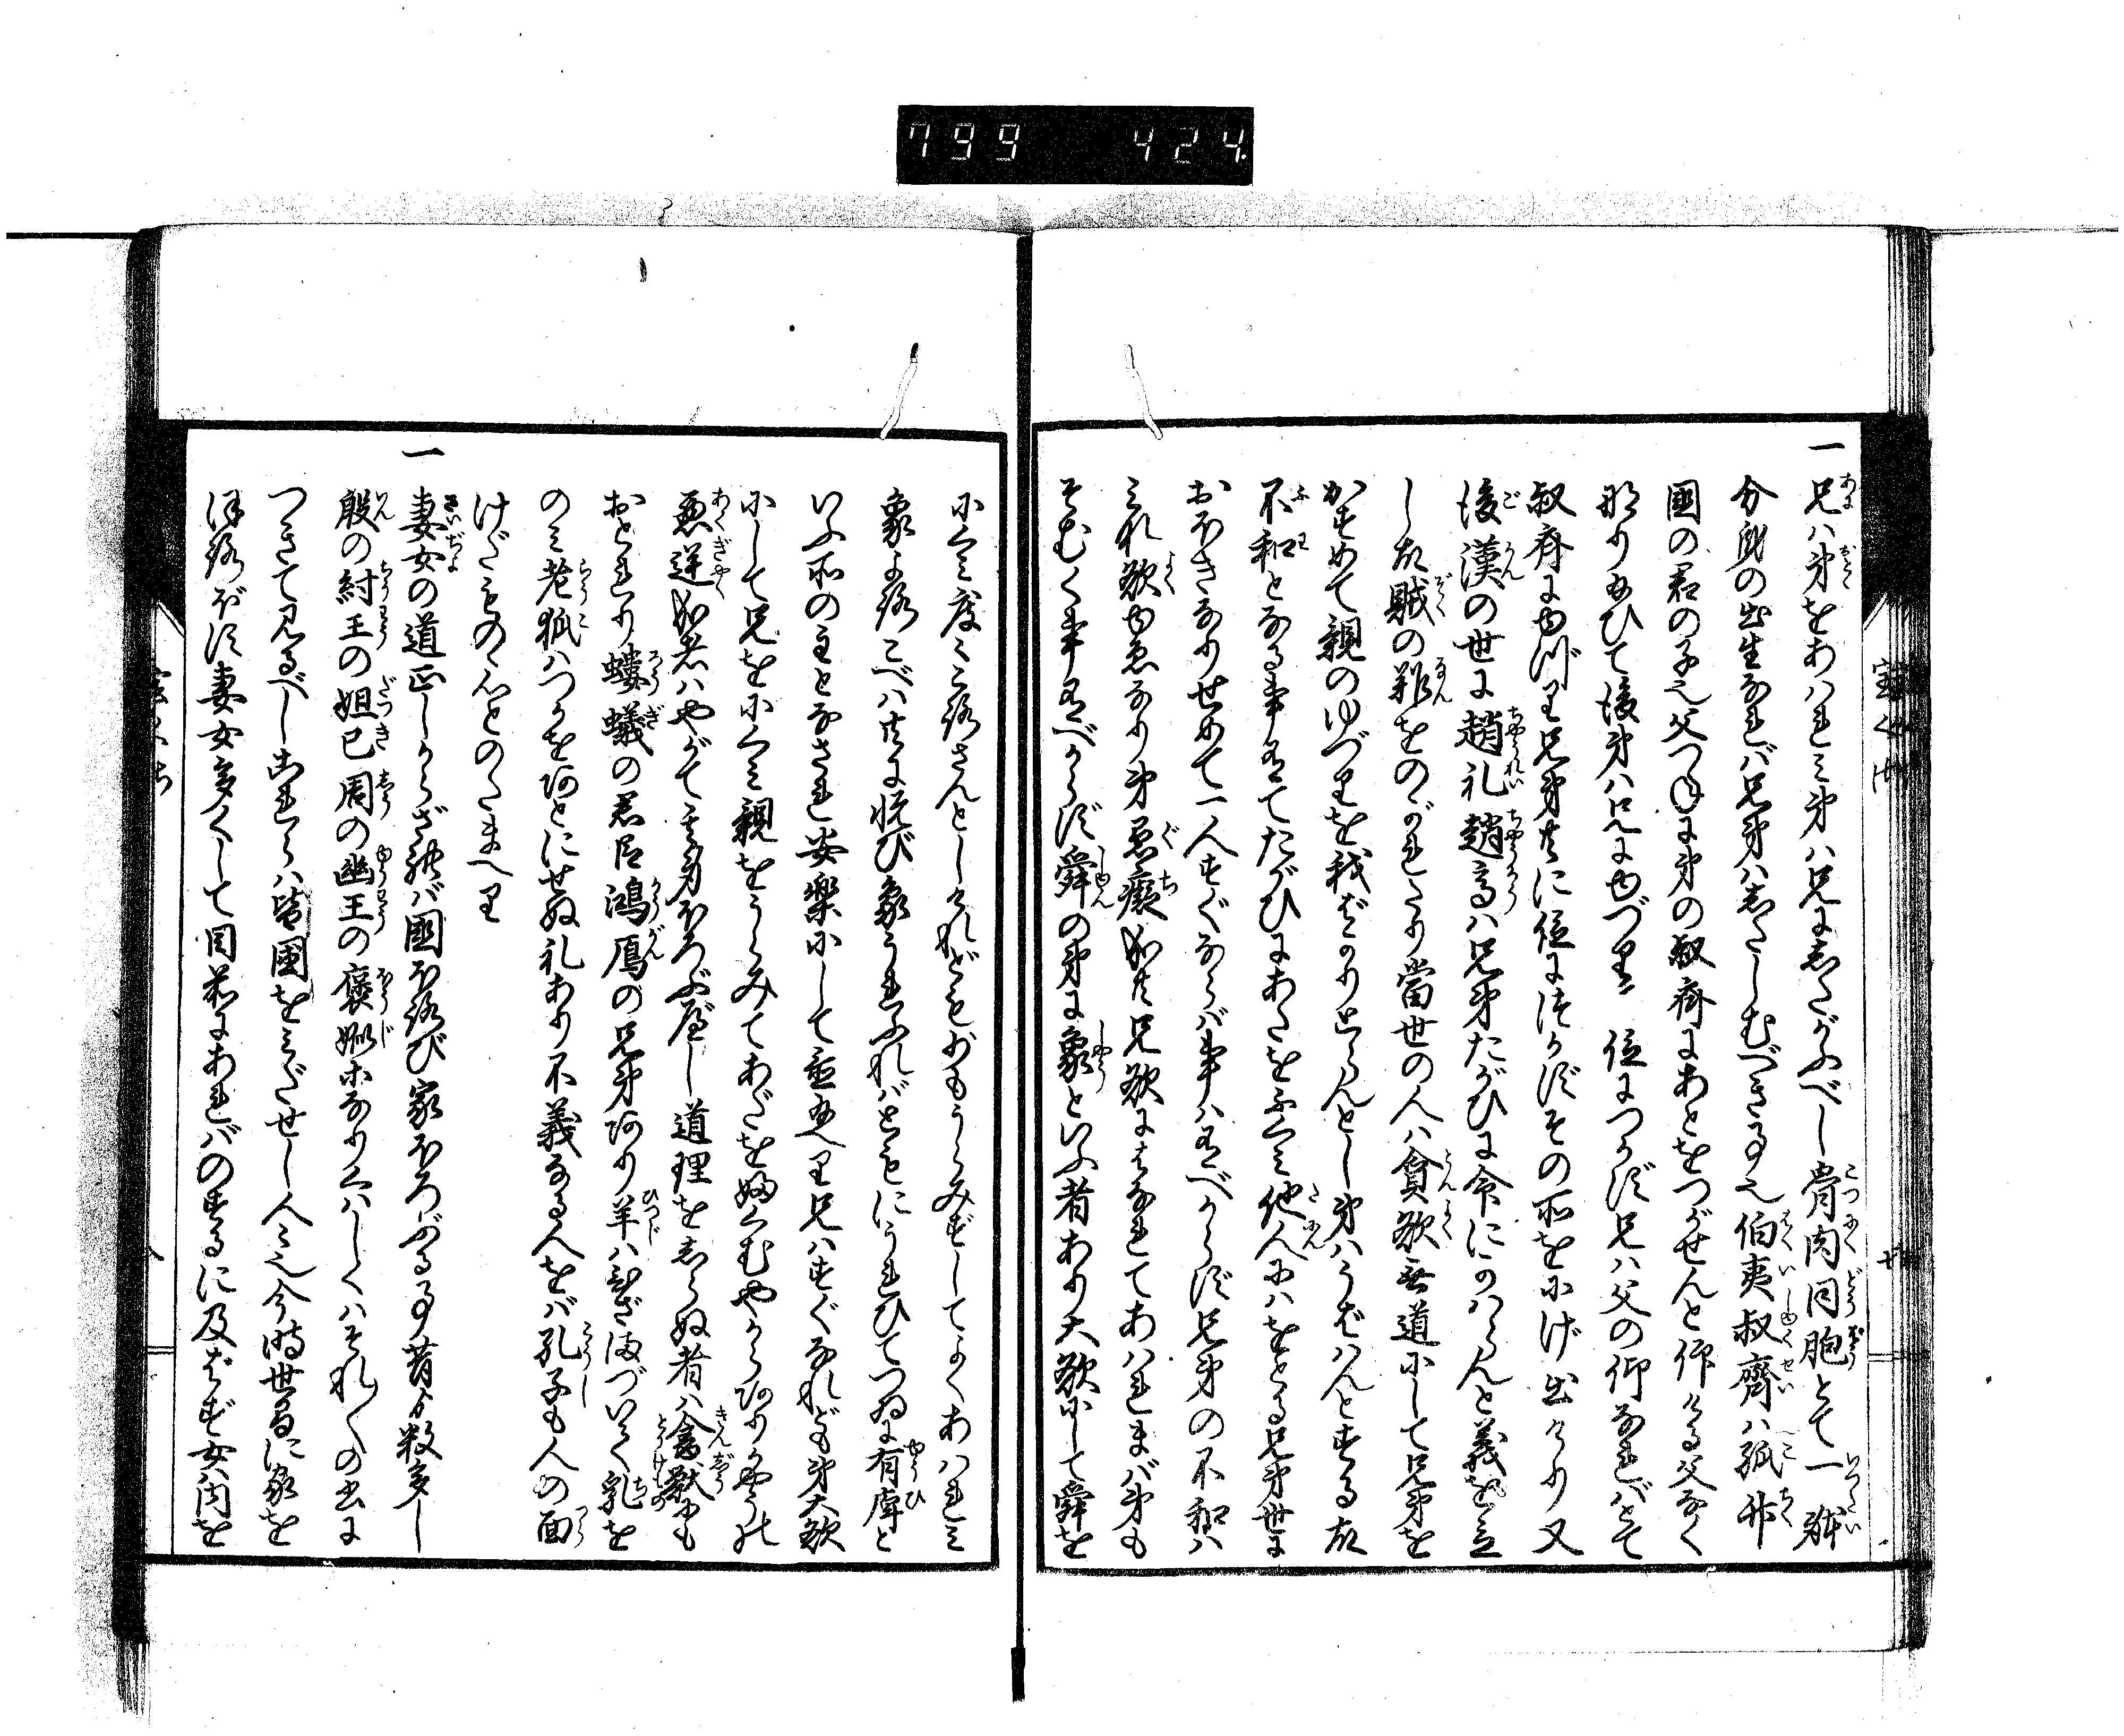 799 424
一兄ハ弟をあハれミ弟ハ兄にしたがふべし骨肉同胞とて一躰
分身の出生なれバ兄弟ハしたしむべき事也伯夷叔齊ハ孤竹
國の君の子也父つねに弟の叔齊にあとをつがせんと仰ける父なく
なり給ひて後弟ハ兄にゆづり位につかず兄ハ父の仰なれバとて
叔齊にゆづり兄弟共に位につかずその所をにげ出けり又
後漢の世に趙礼趙高ハ兄弟たがひに命にかハらんと義を立
し故賊の難をのがれたり當世の人ハ貪欲無道にして兄弟を
かすめて親のゆづりを我ばかりとらんとし弟ハうばハんとする故
不和となる事有てたがひにあたをふくミ他人にハをとる兄弟世に
おほきなりせめて一人すぐならバ事ハ有べからず兄弟の不和ハ
ミれ欲ゆゑなり弟愚癡なり共兄欲にはなれてあハれまバ弟も
そむく事有べからず舜の弟に象といふ者あり大欲にして舜を
にくミ度々ころさんとしけれどもおもうらみずしてよくあハれミ
象よろこべハ共に悦び象うれふれバともにうれひてつゐに有庳と
いふ所の主となされ安樂にして置給へり兄ハすぐなれども弟大欲
にして兄をにくミ親をうらみてあだをふくむやからありかやうの
悪逆の者ハやがて其身ほろぶべし道理をしらぬ者ハ禽獣にも
おとれり螻蟻の君臣鴻鴈の兄弟あり羊ハひざまづいて乳を
のミ老狐ハつかをあとにせぬ礼あり不義なる人をバ孔子も人の面
けだものゝ心とのたまへり
一妻女の道正しからざれバ國ほろび家ほろぶる事昔より数多し
殷の紂王の妲己周の幽王の褒姒等なりくハしくハそれ〳〵の書に
つきて見るべしこれらハ皆國をミだせし人々也今時世間に家を
ほろぼす妻女多くして目前にあれバのするに及ばず女ハ内を